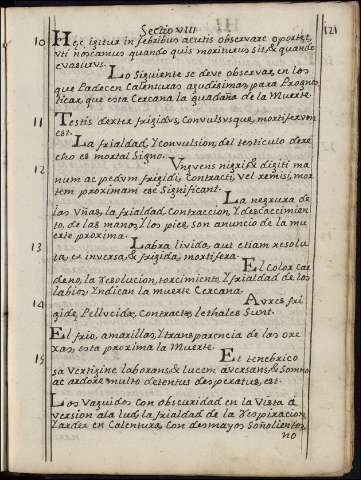 Sectio VIII
121
10 Hęc igitur in febribus acutis observare oportet,
vti noscamus quando quis moriturus sit, & quando
evasurus.
Lo Siguiente se deve observar, en los
que Padecen Calenturas agudisimas, para Prognos
ticar, que esta Cercana la guadaña de la Muerte.
11 Testis dexter frigidus, Convulsusque, mortiferum
est.
La frialdad, Y Convulsion, del testiculo dere
cho es mortal Signo.
12 Vngues nigri, & digiti ma
num ac pedum frigidi, contracti, vel remisi, mor
tem proximam esse Significant.
La negrura de
las Vñas, la frialdad, Contraccion, Y descaecimien
to, de las manos, Y los pies, son anuncio de la mu
erte proxima.
13 Labra livida, aut etiam resolu
ta, et inversa, & frigida, mortifera.
El Color Car
deno, la resolucion, torcimiento, Y frialdad de los
labios, Yndican la muerte Cercana.
14 Aures fri
gidę, Pellucidę, Contractę, lethales Sunt.
El frio, amarillas, Y transparencia de las ore
xas, esta proxima la Muerte.
15 Et tenebrico
sa Vertigine laborans, & lucem aversans, & Somno
ac ardore multo detentus desperatus, est.
Los Vaguidos Con obscuridad en la Vista a
version a la lud, la frialdad de la respiracion,
Y arder en Calentura, Con desmayos Soñolientos,
no